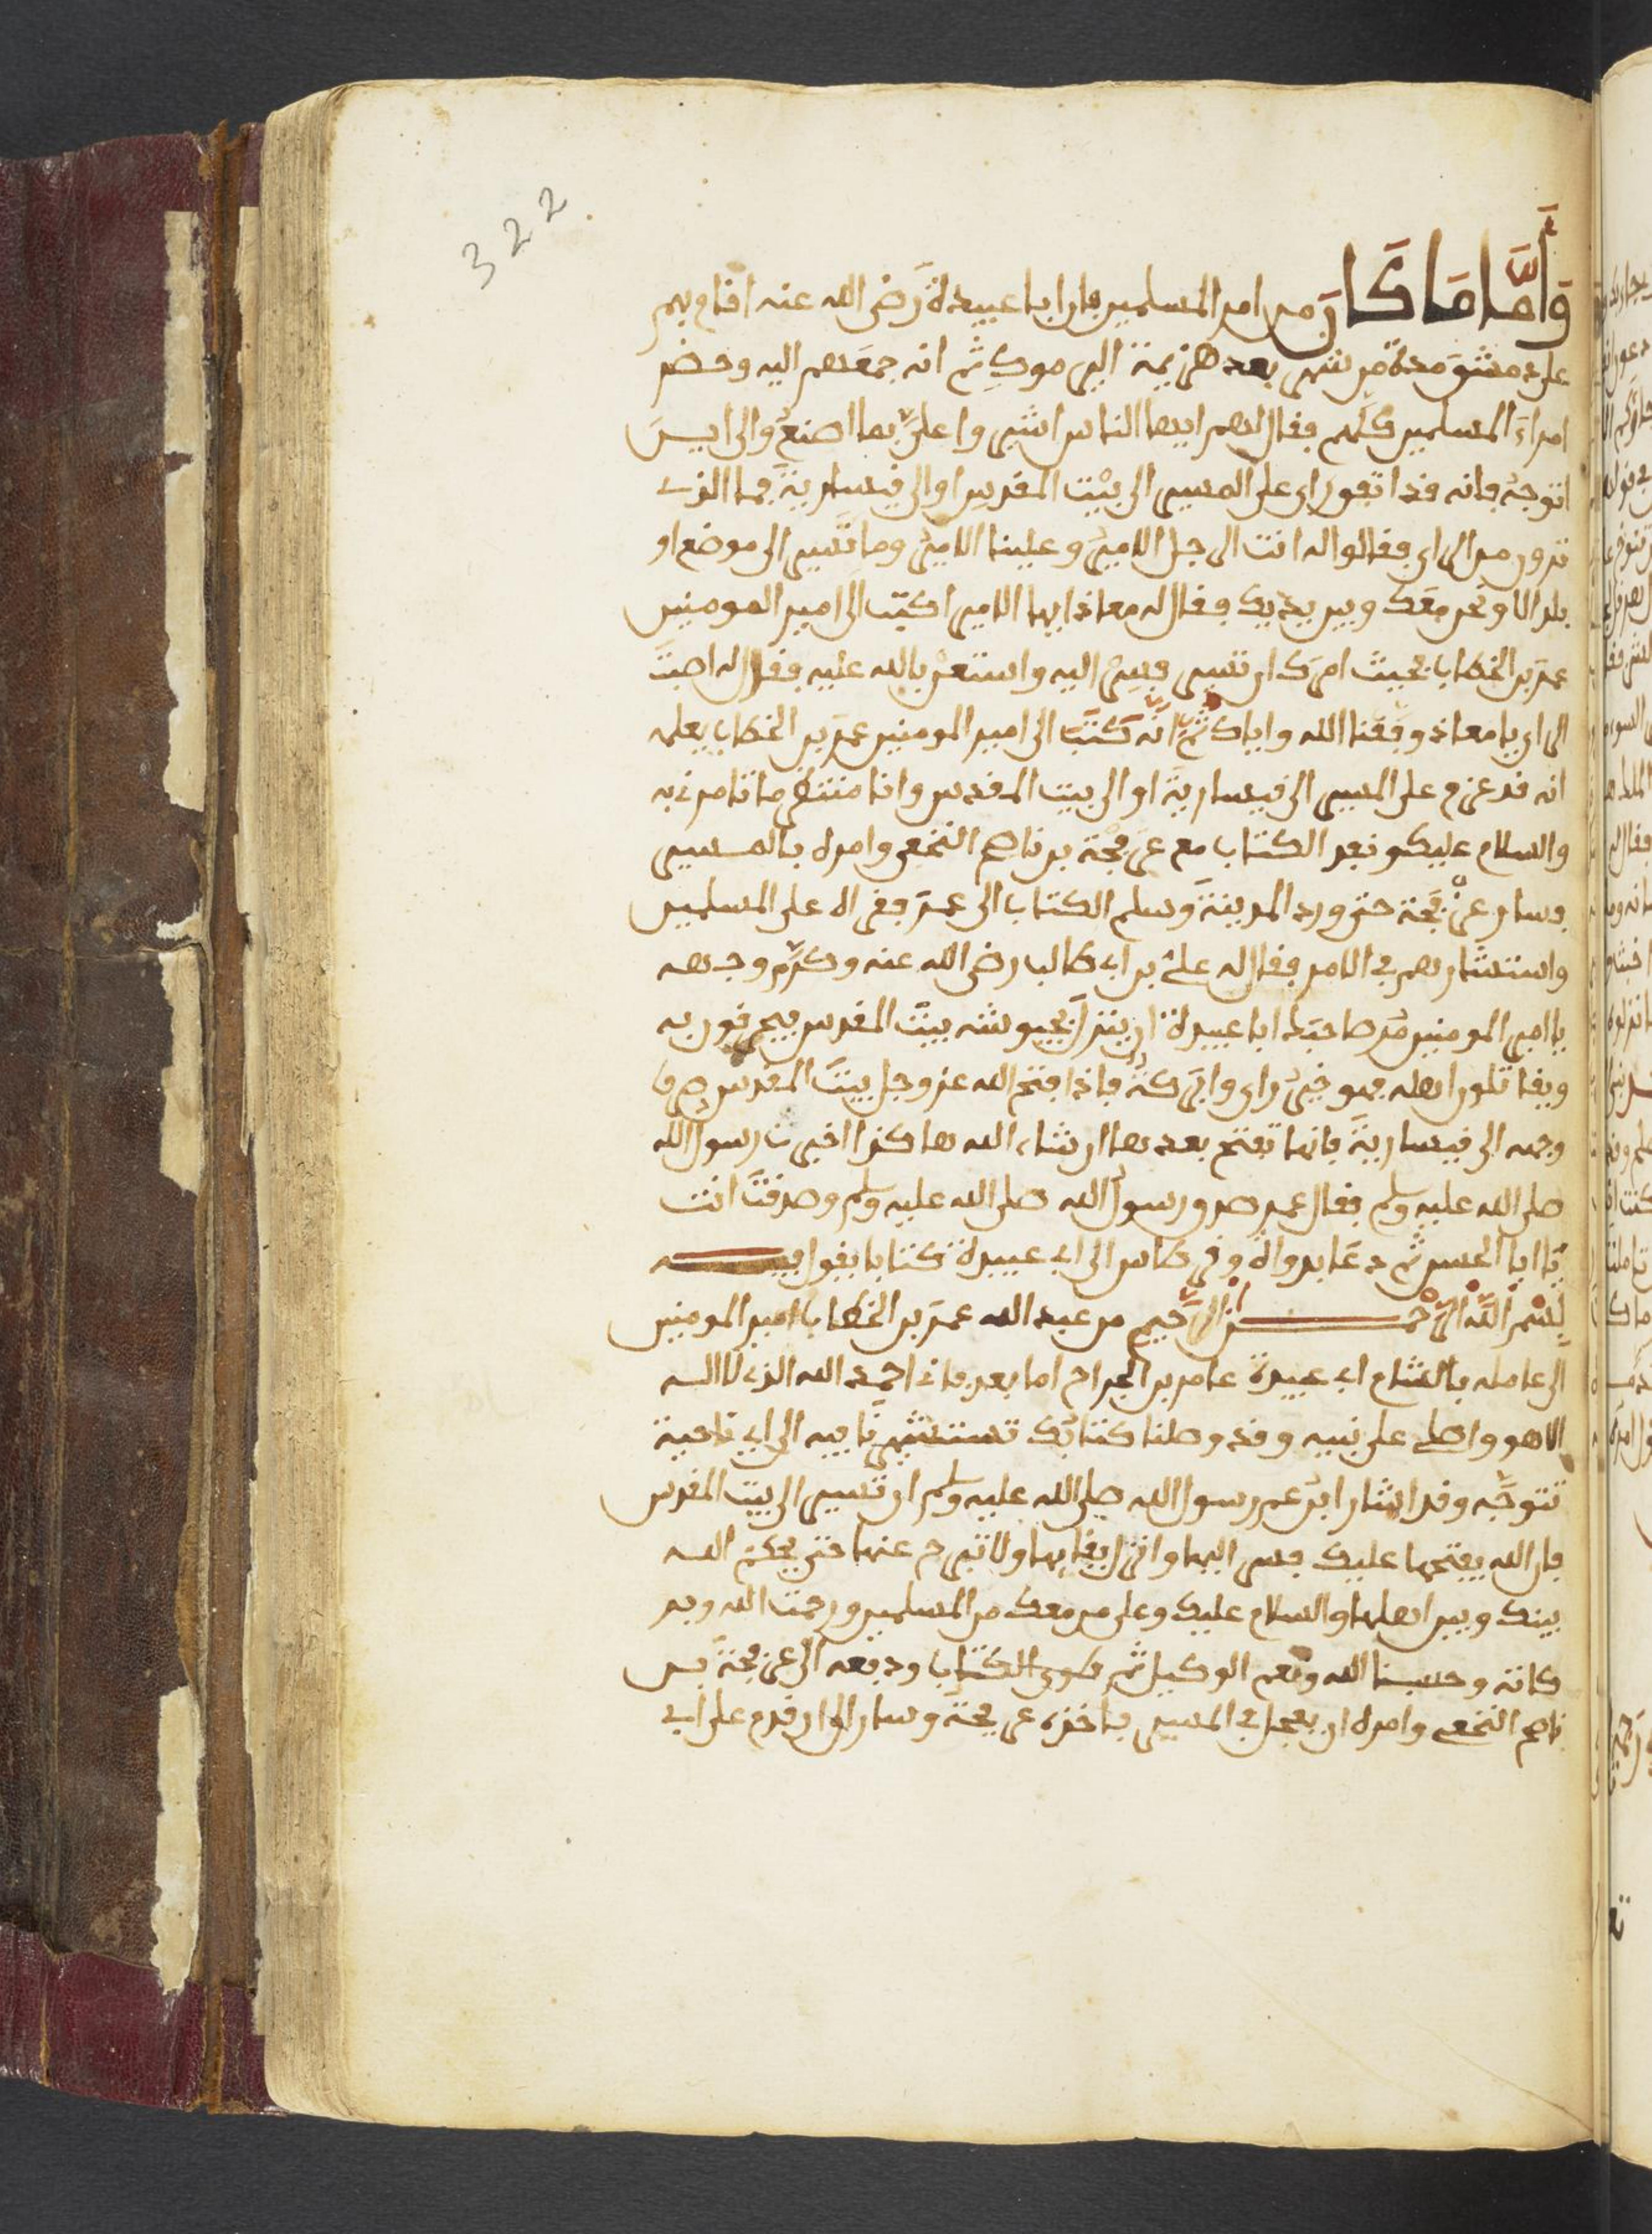 322
وَأَمَّا مَا كَانَ من امر المسلمين فان ابا عبيدة رضى الله عنه اقام بهم
على دمشق مدة من شهر بعد هزيمة اليرموك ثم انه جمعهم اليه وحضر
امراء المسلمين كلهم فقال لهم ايها الناس اشيروا علىّ بما اصنع والى اين
اتوجه فانه قد اتفق راى على المسير الى بيت المقدس او الى قيسارية فما الذى
ترون من الراى فقالوا له انت الرجل الامير وعلينا الامير وما تسير الى موضع او
بلد الا ونحن معك وبين يديك فقال له معاذ ايها الامير اكتب الى امير المومنين
عمر بن الخطاب فحيث امرك ان تسير فسر اليه واستعن بالله عليه فقال له اصبت
الراى يا معاذ وفقنا الله واياك ثم انه كتب الى امير المومنين عمر بن الخطاب يعلمه
انه قد عزم على المسير الى قيسارية او الى بيت المقدس وانا منتظر ما تامرنى به
والسلام عليك ونفد الكتاب مع عرفجة بن ناصح النخعى وامره بالمسير
فسار عرفجة حتى ورد المدينة وسلم الكتاب الى عمر فقراه على المسلمين
واستشارهم فى الامر فقال له على بن ابى طالب رضى الله عنه وكرم وجهه
يا امير المومنين مر صاحبك ابا عبيدة ان ينزل بجيوشه بيت المقدس فيحدقون به
ويقاتلون اهله فهو خير راى وابركه فاذا فتح الله عز وجل بيت المقدس صرف
وجهه الى قيسارية فانها تفتح بعدها ان شاء الله هاكذا اخبرت رسول الله
صلى الله عليه وسلم فقال عمر صدق رسول الله صلى الله عليه وسلم وصدقت انت
يا ابا الحسن ثم دعا بدواة وقرطاس الى ابى عبيدة كتابا يقول فيه
بِسْمِ اللَّهِ الرَّحْمَنِ الرَّحِيمِ من عبد الله عمر بن الخطاب امير المومنين
الى عامله بالشام ابى عبيدة عامر بن الجراح اما بعد فانى احمد الله الذى لا اله
الا هو واصلى على نبيه وقد وصلنا كتابك تستشيرنا فيه الى اى ناحية
تتوجه وقد اشار ابن عم رسول الله صلى الله عليه وسلم ان تسير الى بيت المقدس
فان الله يفتحها عليك فسر اليها وانزل بفنايها ولا تبرح عنها حتى يحكم الله
بينك وبين اهلها والسلام عليك وعلى من معك من المسلمين ورحمت الله وبر
كاته وحسبنا الله ونعم الوكيل ثم طوى الكتاب ودفعه الى عرفجة بن
ناصح النخعى وامره ان يعجل فى المسير فاخذه عرفجة وسار الى ان قدم على ابى